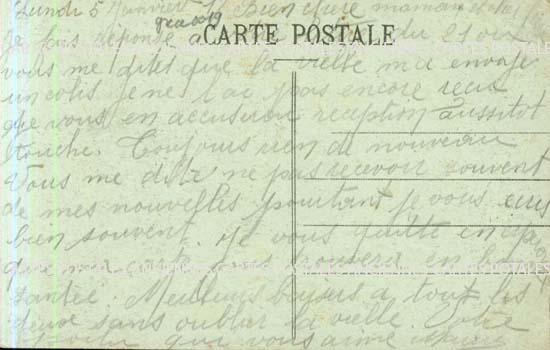 Lundi 5 Janvier Bien chère maman et
CARTE POSTALE
Je fais réponse a du
vous me dites que la vielle m'a envoyé
un colis je ne l'ai pas encore recu
que vous en accuserai reception aussitot
touche. Toujours rien de nouveau
Vous me dite ne pas recevoir souvent
de mes nouvelles pourtant je vous ecris
bien souvent. Je vous quitte en
que ma carte vous trouvera en bonne
santée. Meilleurs baisers a tout les
deux sans oublier la vielle. Votre
qui vous aime